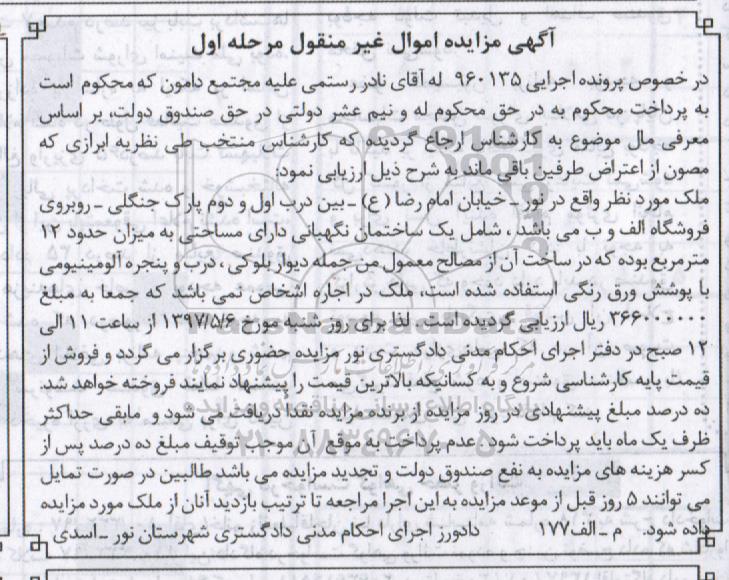 آگهی مزایده اموال غیر منقول مرحله اول
در خصوص پرونده اجرایی ۹۶۰۱۳۵ له آقای نادر رستمی علیه مجتمع دامون که محکوم است
به پرداخت محکوم به در حق محکوم له و نیم عشر دولتی در حق صندوق دولت، بر اساس
معرفی مال موضوع به کارشناس ارجاع گردیده که کارشناس منتخب طی نظریه ابرازی که
مصون از اعتراض طرفین باقی مانده به شرح ذیل ارزیابی نمود:
ملک مورد نظر واقع در نور ـ خیابان امام رضا (ع) ـ بین درب اول و دوم پارک جنگلی ـ روبروی
فروشگاه الف و ب می باشد ، شامل یک ساختمان نگهبانی دارای مساحتی به میزان حدود ۱۲
مترمربع بوده که در ساخت آن از مصالح معمول من جمله دیوار بلوکی ، درب و پنجره آلومینیومی
با پوشش ورق رنگی استفاده شده است، ملک در اجاره اشخاص نمی باشد که جمعا به مبلغ
ریال ارزیابی گردیده است. لذا برای روز شنبه مورخ ۱۳۹۷/۵/۶ از ساعت ۱۱ الی
۱۲ صبح در دفتر اجرای احکام مدنی دادگستری نور مزایده حضوری برگزار می گردد و فروش از
قیمت پایه کارشناسی شروع و به کسانیکه بالاترین قیمت را پیشنهاد نمایند فروخته خواهد شد.
ده درصد مبلغ پیشنهادی در روز مزایده از برنده مزایده نقداً دریافت می شود و مابقی حداکثر
ظرف یک ماه باید پرداخت شود. عدم پرداخت به موقع آن موجب توقیف مبلغ ده درصد پس از
کسر هزینه های مزایده به نفع صندوق دولت و تجدید مزایده می باشد طالبین در صورت تمایل
می توانند ۵ روز قبل از موعد مزایده به این اجرا مراجعه تا ترتیب بازدید آنان از ملک مورد مزایده
داده شود. م ـ الف۱۷۷ دادورز اجرای احکام مدنی دادگستری شهرستان نور ـ اسدی